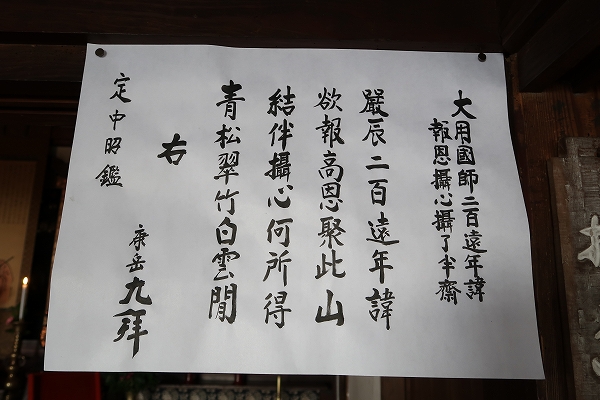 大用國師二百遠年諱
報恩攝心攝了半齋
嚴辰二百遠年諱
欲報高恩聚此山
結伴攝心何所得
青松翠竹白雲閒
右
定中昭鑑
康岳九拜